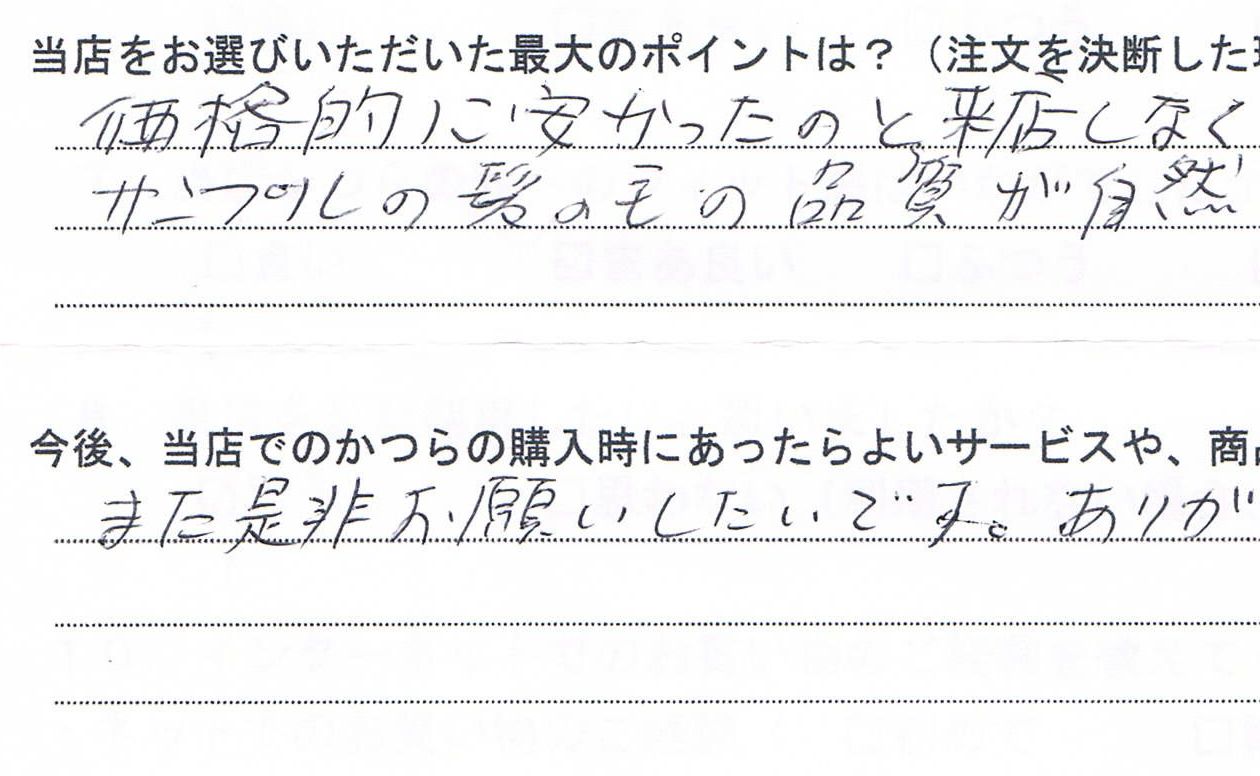 当店をお選びいただいた最大のポイントは?(注文を決断した
価格的に安かったのと、来店しなく
サンプルの髪の毛の品質が自然
今後、当店でのかつらの購入時にあったらよいサービスや、商
また是非お願いしたいです。ありが